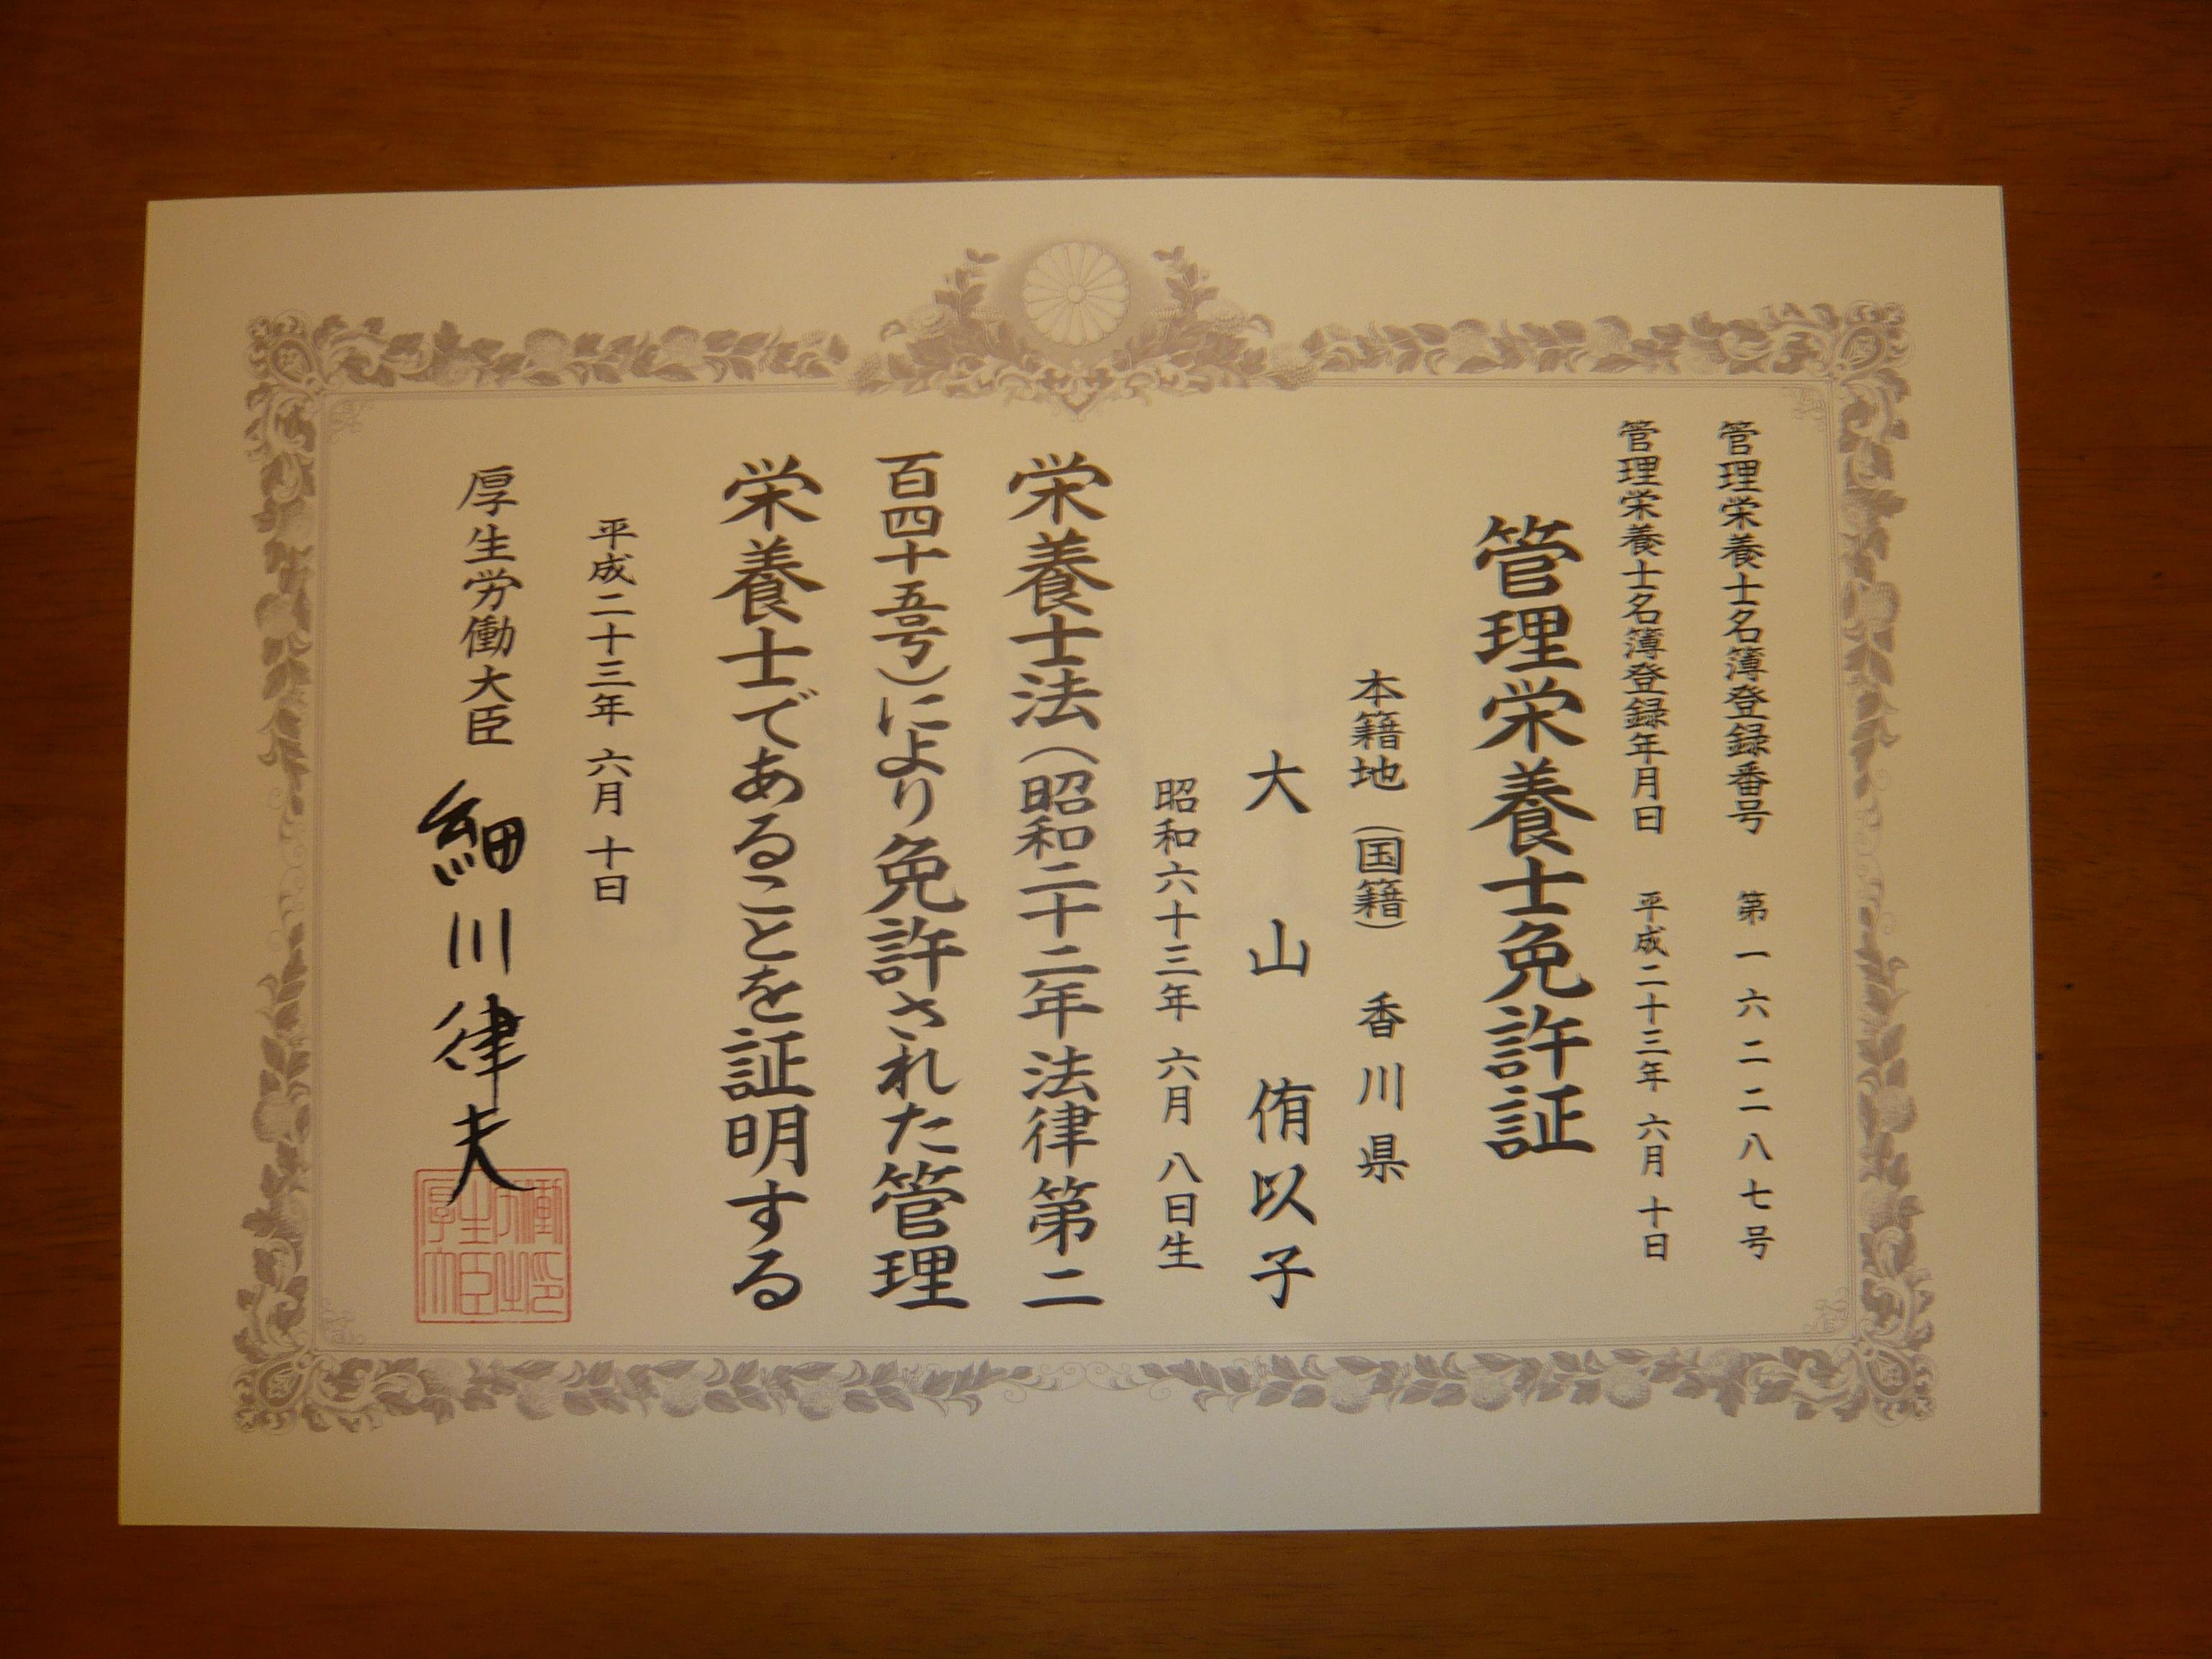 管理栄養士名簿登録番号 第一六二二八七号
管理栄養士名簿登録年月日 平成二十三年 六月 十日
管理栄養士免許証
本籍地（国籍） 香川県
大山 侑以子
昭和六十三年 六月 八日生
栄養士法（昭和二十二年法律第二
百四十五号）により免許された管理
栄養士であることを証明する
平成二十三年 六月 十日
厚生労働大臣 細川律夫